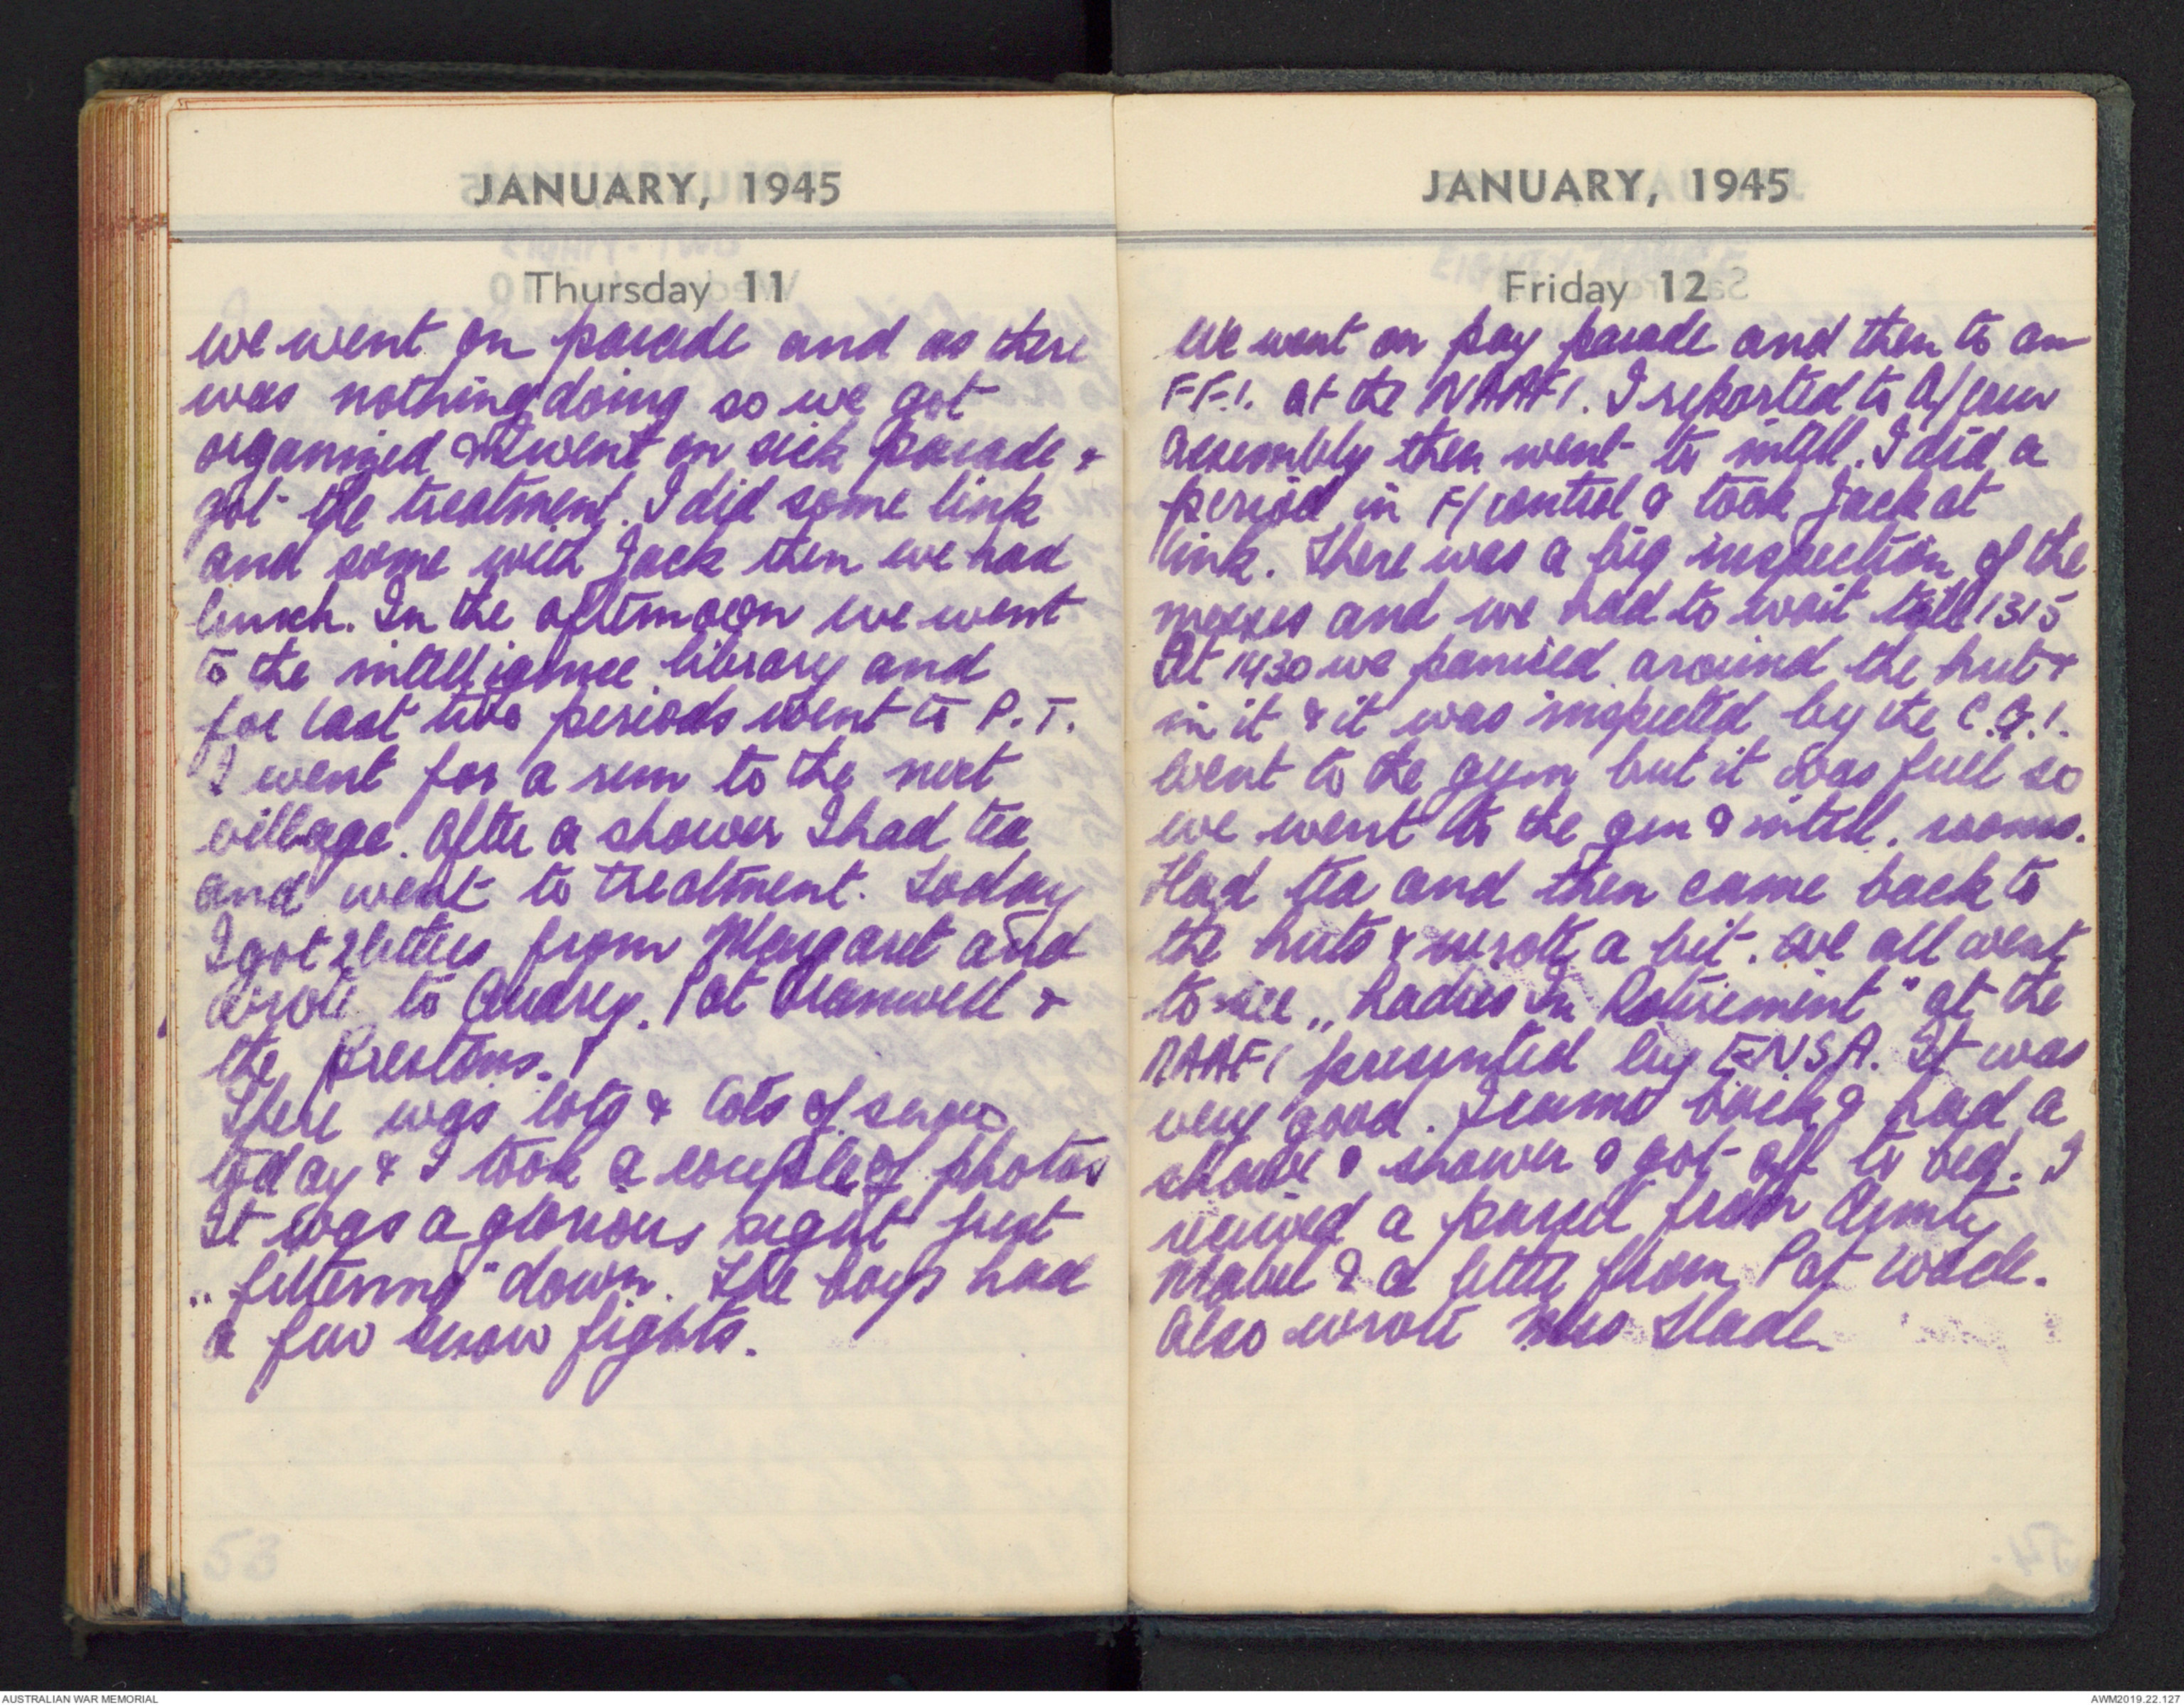 JANUARY, 1945
Thursday 11
we went on parade and as there
was nothing doing so we got
organized & went on sick parade &
got the treatment. I did some link
and some with Jack then we had
lunch. In the afternoon we went
to the intelligence library and
for last two periods went to P.T.
I went for a run to the next
village. After a shower I had tea
and went to treatment. Today
I got 2 letters from Margaret and
wrote to Audrey, Pat Branwell &
the Prestons.
There was lots & lots of snow
today & I took a couple of photos
It was a glorious sight just
„filtering" down. The boys had
a few snow fights.
JANUARY, 1945
Friday 12
We went on pay parade and then to an
F.F.I. at the NAAFI. I reported to A/crew
assembly then went to intell. I did a
period in F/control & took Jack at
link. There was a big inspection of the
messes and we had to wait till 1315
At 1430 we panised around the hut &
in it & it was inspected by the C.G.I.
went to the gym but it was full so
we went to the gen & intell. rooms.
Had tea and then came back to
the huts & wrote a bit. We all went
to see „Ladies In Retirement" at the
NAAFI presented by ENSA. It was
very good. I came back & had a
shave & shower & got off to bed. I
received a parcel from Aunty
Mabel & a letter from Pat Wade.
Also wrote Mrs Slade.
AUSTRALIAN WAR MEMORIAL
AWM2019.22.127